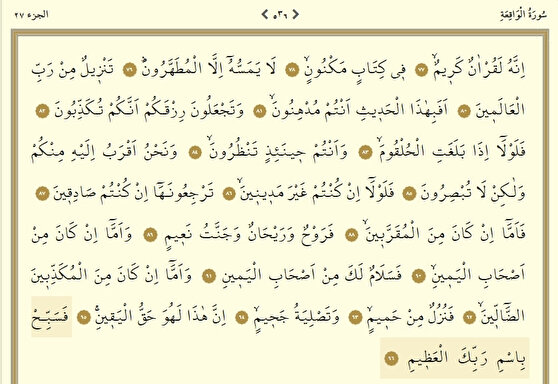 سُورَةُ الْوَاقِعَةِ ٥٣٦ الجزء ٢٧
اِنَّهُ لَقُرْاٰنٌ كَر۪يمٌۙ ٧٧ ف۪ي كِتَابٍ مَكْنُونٍۙ ٧٨ لَا يَمَسُّهُٓ اِلَّا الْمُطَهَّرُونَۜ ٧٩ تَنْز۪يلٌ مِنْ رَبِّ
الْعَالَم۪ينَ ٨٠ اَفَبِهٰذَا الْحَد۪يثِ اَنْتُمْ مُدْهِنُونَۙ ٨١ وَتَجْعَلُونَ رِزْقَكُمْ اَنَّكُمْ تُكَذِّبُونَ ٨٢
فَلَوْلَٓا اِذَا بَلَغَتِ الْحُلْقُومَۙ ٨٣ وَاَنْتُمْ ح۪ينَئِذٍ تَنْظُرُونَۙ ٨٤ وَنَحْنُ اَقْرَبُ اِلَيْهِ مِنْكُمْ
وَلٰكِنْ لَا تُبْصِرُونَ ٨٥ فَلَوْلَٓا اِنْ كُنْتُمْ غَيْرَ مَد۪ين۪ينَۙ ٨٦ تَرْجِعُونَهَٓا اِنْ كُنْتُمْ صَادِق۪ينَ ٨٧
فَاَمَّٓا اِنْ كَانَ مِنَ الْمُقَرَّب۪ينَۙ ٨٨ فَرَوْحٌ وَرَيْحَانٌ وَجَنَّتُ نَع۪يمٍ ٨٩ وَاَمَّٓا اِنْ كَانَ مِنْ
اَصْحَابِ الْيَم۪ينِۙ ٩٠ فَسَلَامٌ لَكَ مِنْ اَصْحَابِ الْيَم۪ينِ ٩١ وَاَمَّٓا اِنْ كَانَ مِنَ الْمُكَذِّب۪ينَ
الضَّٓالّ۪ينَۙ ٩٢ فَنُزُلٌ مِنْ حَم۪يمٍۙ ٩٣ وَتَصْلِيَةُ جَح۪يمٍ ٩٤ اِنَّ هٰذَا لَهُوَ حَقُّ الْيَق۪ينِۚ ٩٥ فَسَبِّحْ
بِاسْمِ رَبِّكَ الْعَظ۪يمِ ٩٦